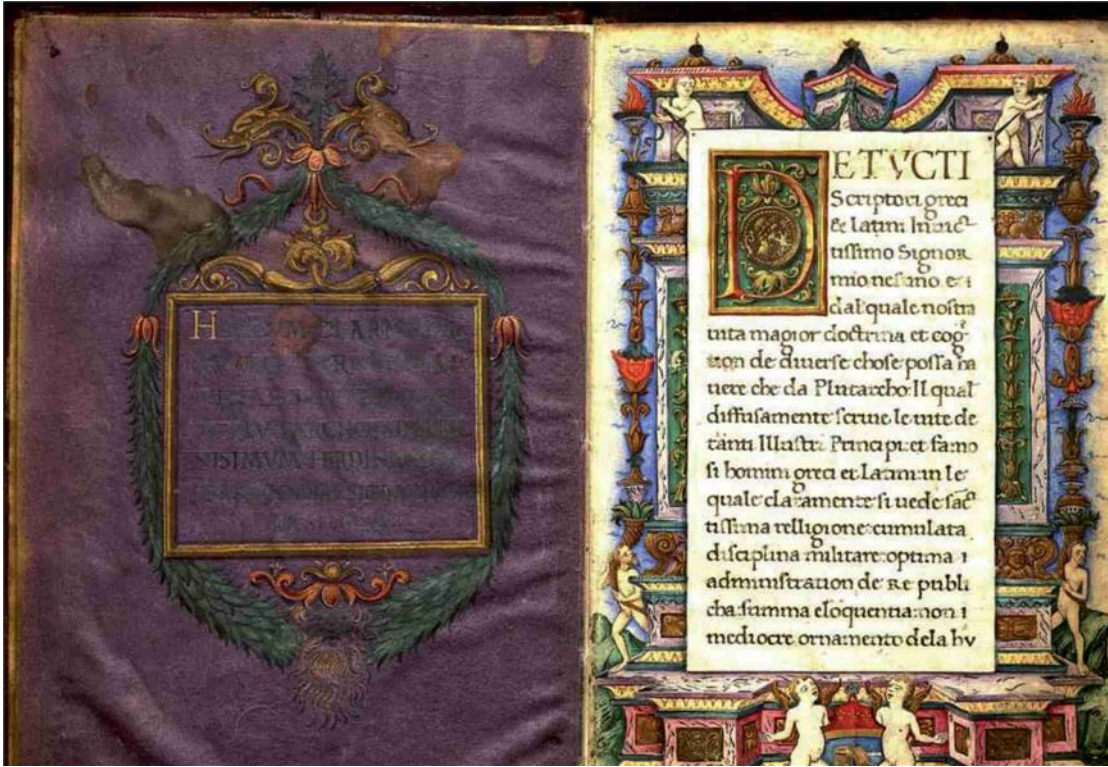 H
DE TVCTI
Scriptori greci
& latini Inuic
tissimo Signor
mio nesuno e i
dal quale nostra
uita magior doctrina et cog
tion de diuerse chose possa ha
uere che da Plutarcho: Il qual
diffusamente scriue le uite de
tanti Illustri Principi et famo
si homini greci et Latini in le
quale claramente si uede sac
tissima relligione: cumulata
disciplina militare: optima i
administration de Re publi
cha: summa eloquentia: non i
mediocre ornamento dela hv